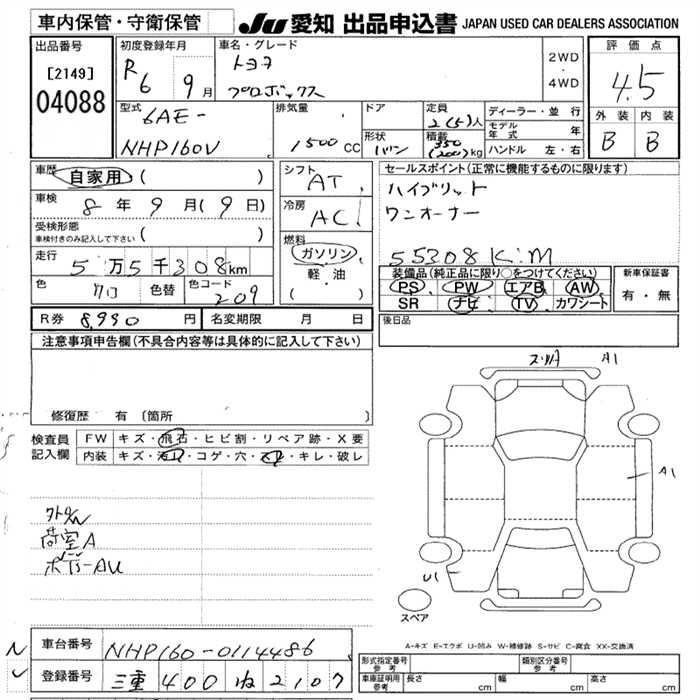 車内保管・守衛保管
JU 愛知 出品申込書 JAPAN USED CAR DEALERS ASSOCIATION
出品番号
[2149]
04088
初度登録年月
R6 9月
車名・グレード
トヨタ
プロボックス
2WD
・
4WD
評価点
4.5
外装 内装
B B
型式
6AE-
NHP160V
排気量
1500cc
ドア
形状
バン
定員
2(5)人
積載
350
(200)kg
ディーラー・並行
モデル年式 年
ハンドル 左・右
車歴
自家用 ( )
車検
8年9月(9日)
受検形態
車検付きのみ記入して下さい ( )
走行
5万5千308km
色
クロ
色替
色コード
209
シフト
AT
冷房
AC
燃料
ガソリン
軽・油
( )
セールスポイント(正常に機能するものに限ります)
ハイブリット
ワンオーナー
55308K.M
装備品(純正品に限り○をつけてください)
PS PW エアB AW
SR ナビ TV カワシート
新車保証書
有・無
R券 8,990円
名変期限 月 日
後日品
注意事項申告欄(不具合内容等は具体的に記入して下さい)
修復歴 有 [箇所
検査員
記入欄
FW キズ・飛石・ヒビ割・リペア跡・X要
内装 キズ・コゲ・穴・キレ・破レ
A1
A1
荷室A
U1
スペア
A-キズ E-エクボ U-凹み W-補修跡 S-サビ C-腐食 XX-交換済
車台番号 NHP160-0114486
登録番号 三重 400 ね 2107
形式指定番号
参考
類別区分番号
参考
車庫証明用
参考
長さ cm
幅 cm
高さ cm